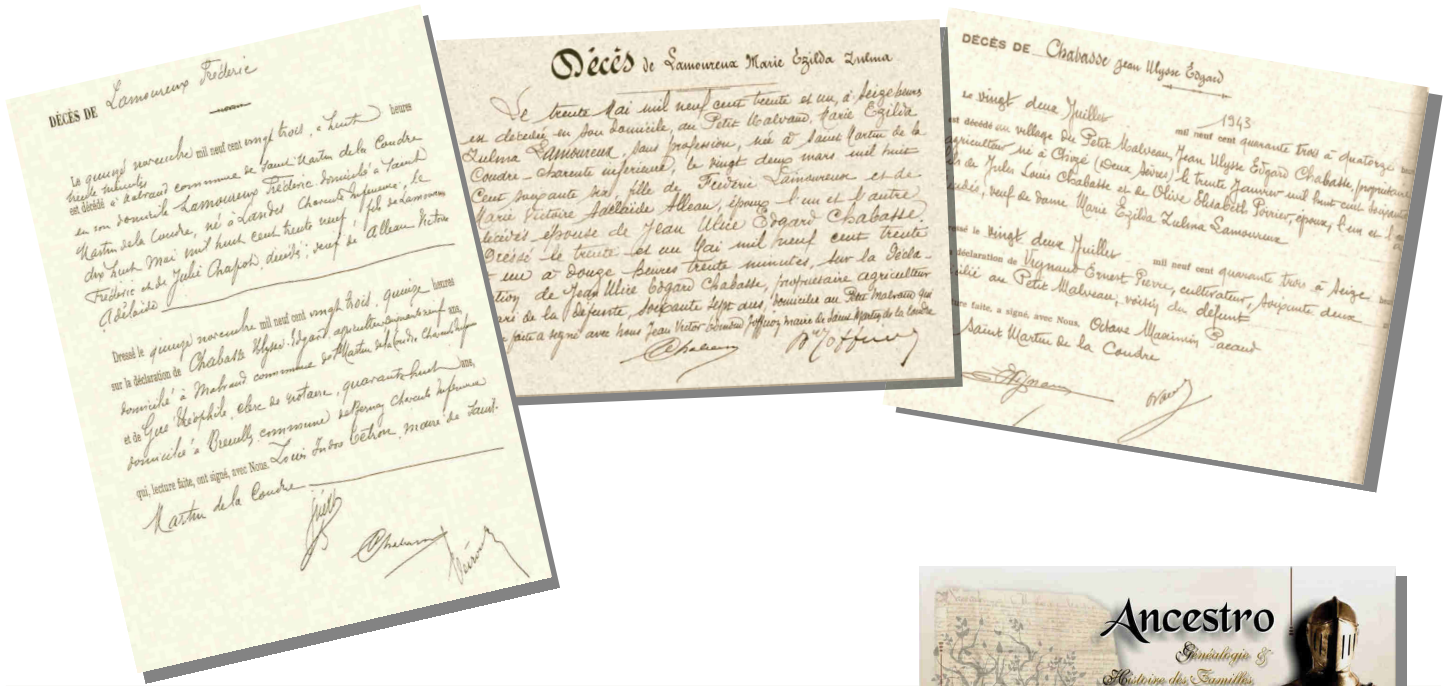 DÉCÈS DE Lamoureux Frédéric
Le quinze novembre mil neuf cent vingt trois, à huit heures
trente minutes
est décédé à Malvaud commune de Saint Martin de la Coudre
en son domicile Lamoureux Frédéric domicilié à Saint
Martin de la Coudre, né à Landes Charente Inférieure, le
dix huit Mai mil huit cent trente neuf, fils de Lamoureux
Frédéric et de Julie Chapon, décédés, veuf de Alleau Victoire
Adélaïde
Dressé le quinze novembre mil neuf cent vingt trois, quinze heures
sur la déclaration de Chabasse Ulysse Edgard agriculteur cinquante neuf ans,
domicilié à Malvaud commune de St Martin de la Coudre Charente Inférieure
et de Gué Théophile, clerc de notaire, quarante huit ans,
domicilié à Breuilly commune de Bernay Charente Inférieure
qui, lecture faite, ont signé, avec Nous, Louis maire de Saint-
Martin de la Coudre
Décès de Lamoureux Marie Ezilda Zulma
Le trente Mai mil neuf cent trente et un, à seize heures
est décédée en son domicile, au Petit Malvaud, Marie Ezilda
Zulma Lamoureux, sans profession, née à Saint Martin de la
Coudre - charente inférieure, le vingt deux mars mil huit
Cent soixante six, fille de Frédéric Lamoureux et de
Marie Victoire Adélaïde Alleau, époux l'un et l'autre
décédés épouse de Jean Ulice Edgard Chabasse.
Dressé le trente et un Mai mil neuf cent trente
et un à douze heures trente minutes, sur la décla-
tion de Jean Ulice Edgard Chabasse, propriétaire agriculteur
ari de la défunte, soixante sept ans, domicilié au Petit Malvaud qui
faite a signé avec nous Jean Victor Joffrion maire de Saint Martin de la Coudre
DÉCÈS DE Chabasse Jean Ulysse Edgard
Le vingt deux Juillet mil neuf cent quarante trois à quatorze
1943
est décédé au village du Petit Malveau, Jean Ulysse Edgard Chabasse, propriétaire
agriculteur né à Chizé (Deux Sèvres) le trente Janvier mil huit cent soixante
ls de Jules Louis Chabasse et de Olive Elisabeth Poirier, époux, l'un et l'au
cédés, veuf de dame Marie Ezilda Zulma Lamoureux
le vingt deux Juillet mil neuf cent quarante trois à seize
déclaration de Vignaud Ernest Pierre, cultivateur, soixante deux
cilié au Petit Malveau, voisin du défunt
ture faite, a signé, avec Nous, Octave Maximin Pacaud
Saint Martin de la Coudre
Ancestro
Généalogie &
Histoire des Familles